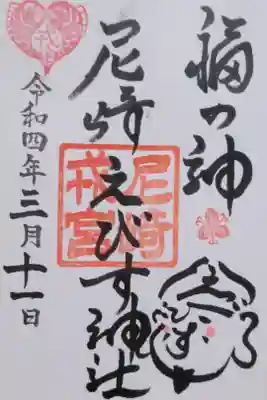 福の神
尼崎えびす神社
尼崎
戎宮
令和四年三月十一日